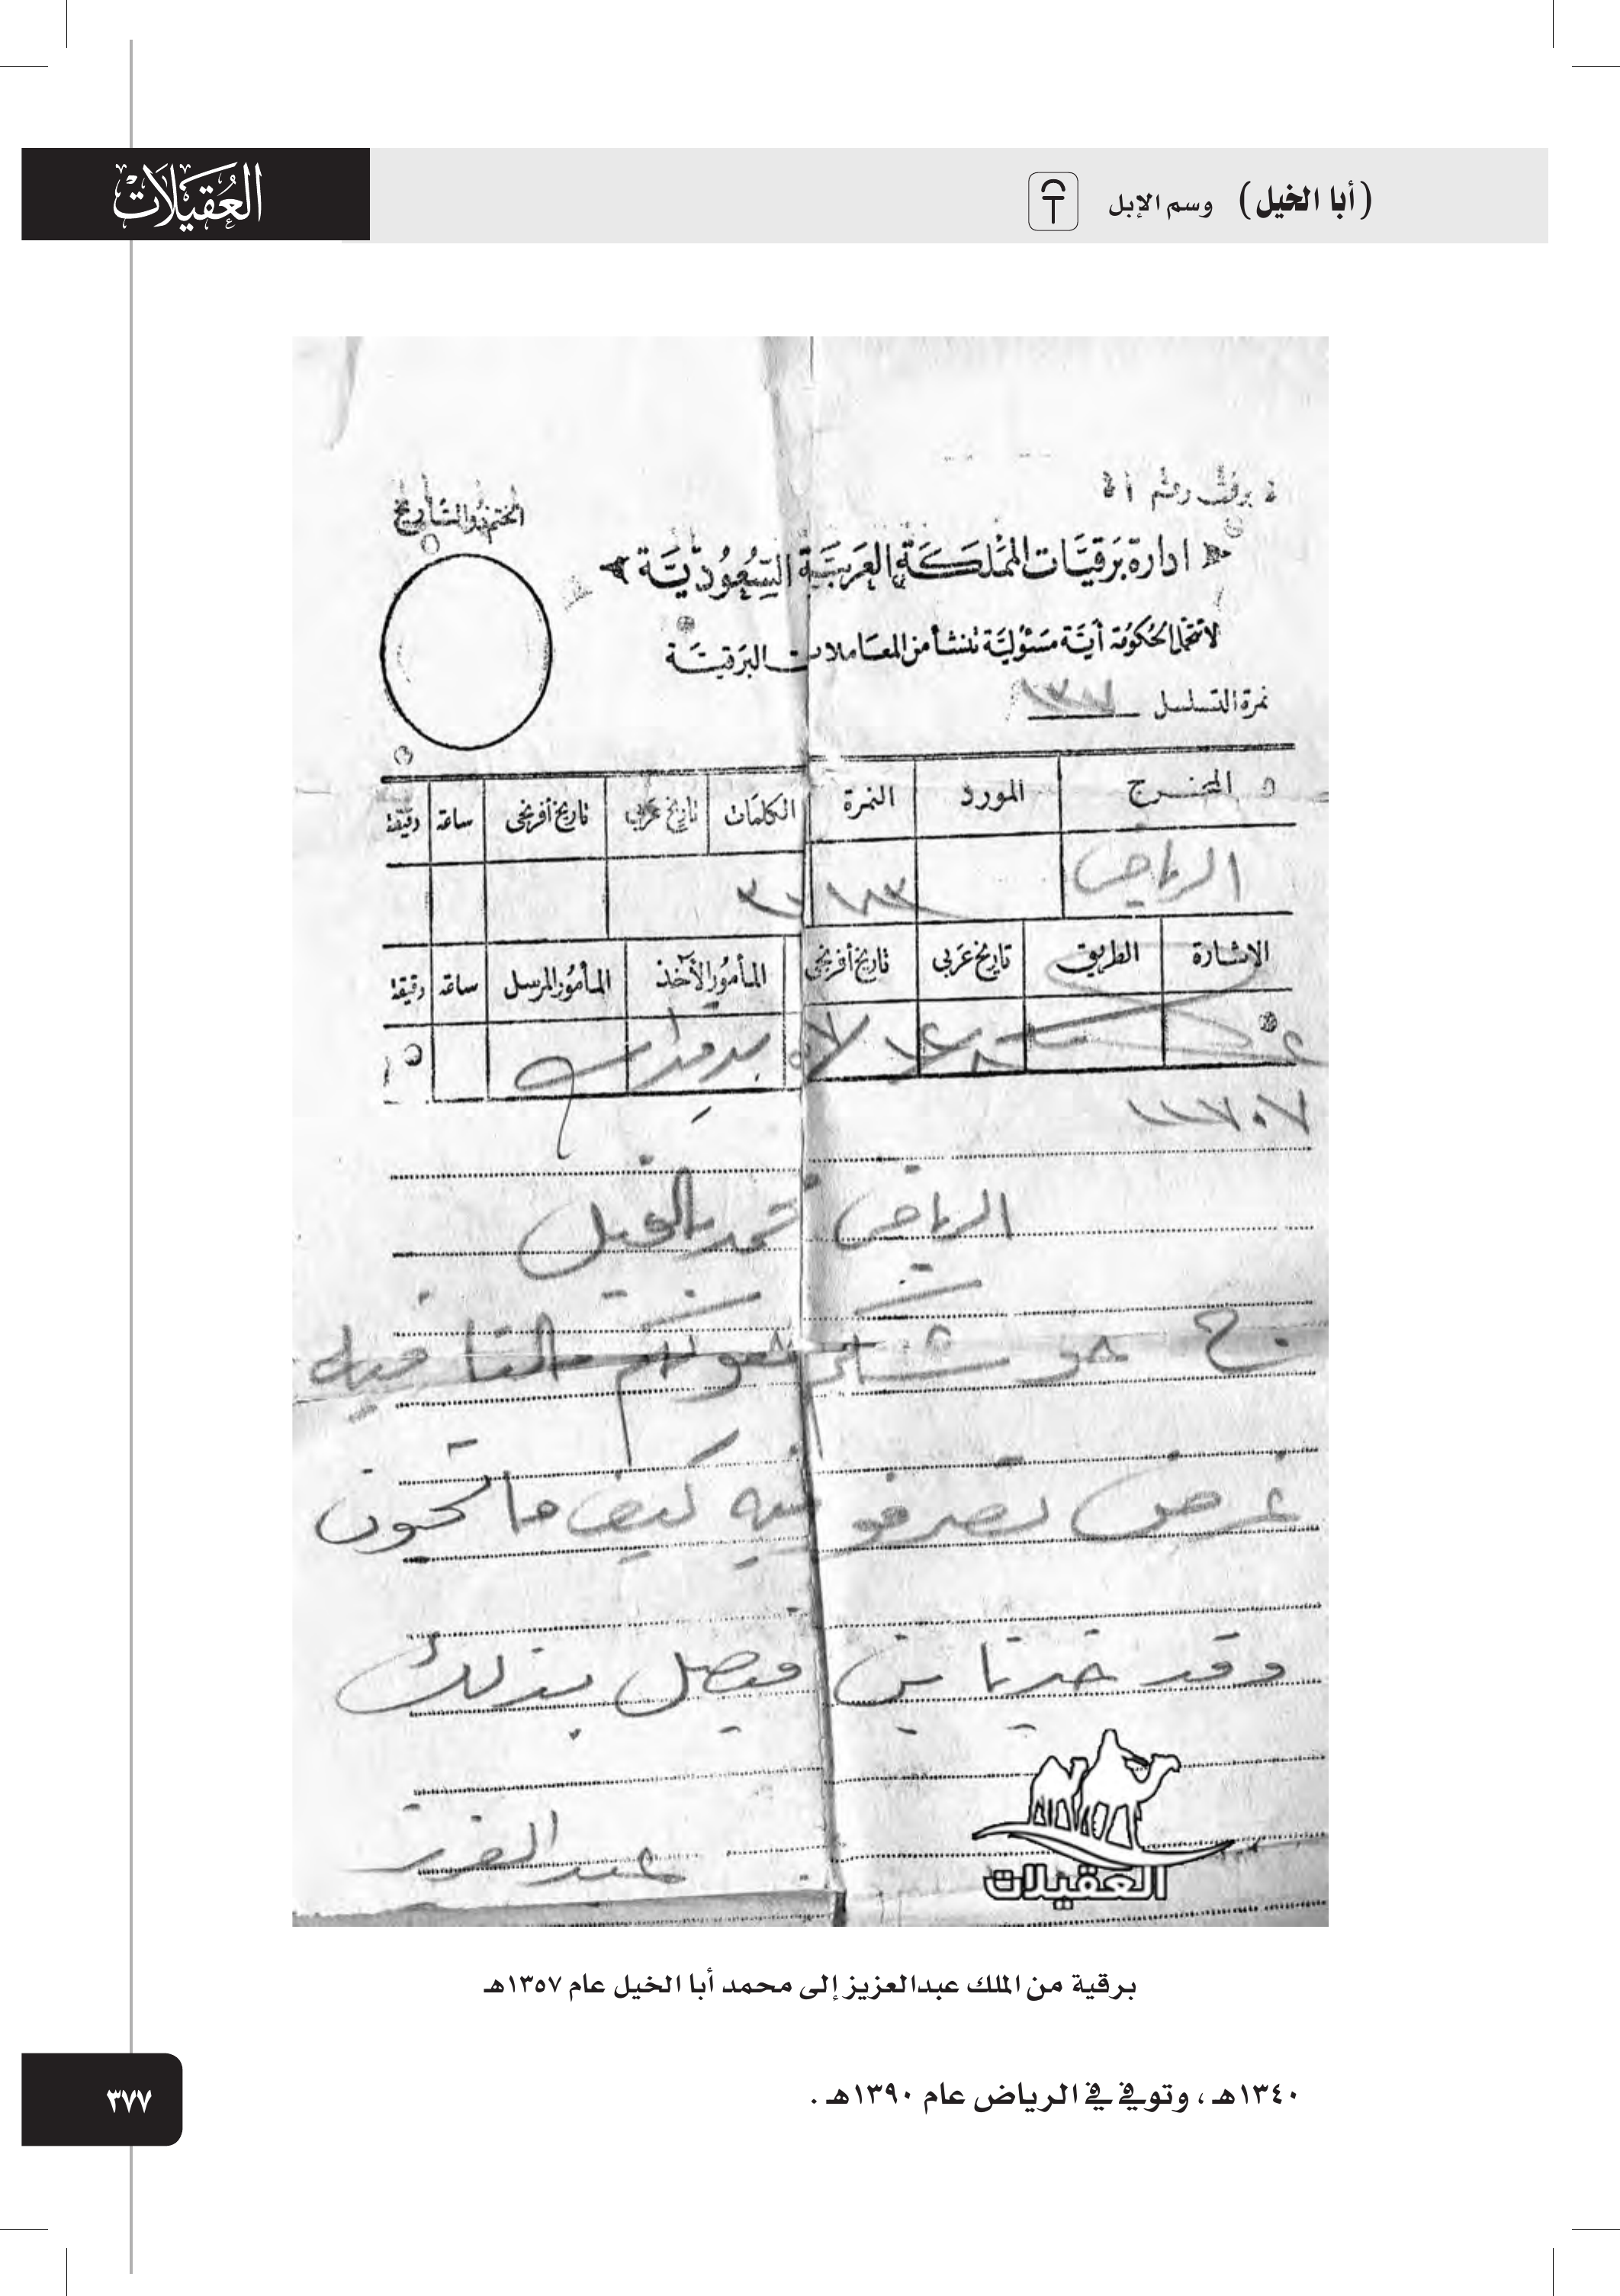 (أبا الخيل) وسم الإبل
العُقَيْلَات
برقيات رقم
الختم والتاريخ
ادارة برقيات المملكة العربية السعودية
لا تتحمل الحكومة أية مسئولية تنشأ من المعاملات البرقية
نمرة التسلسل
المخرج المورد النمرة الكلمات تاريخ عربي تاريخ أفرنجي ساعة دقيقة
الرياض
الاشارة الطريق تاريخ عربي تاريخ أفرنجي المأمور الآخذ المأمور المرسل ساعة دقيقة
الرياض محمد بالخيل
ج
غرض تصرفو فيه كيف ما تحون
وقد خبرنا بن فيصل بذلك
عبد العزيز
العقيلات
برقية من الملك عبدالعزيز إلى محمد أبا الخيل عام ١٣٥٧هـ
١٣٤٠هـ ، وتوفي في الرياض عام ١٣٩٠هـ .
٣٧٧